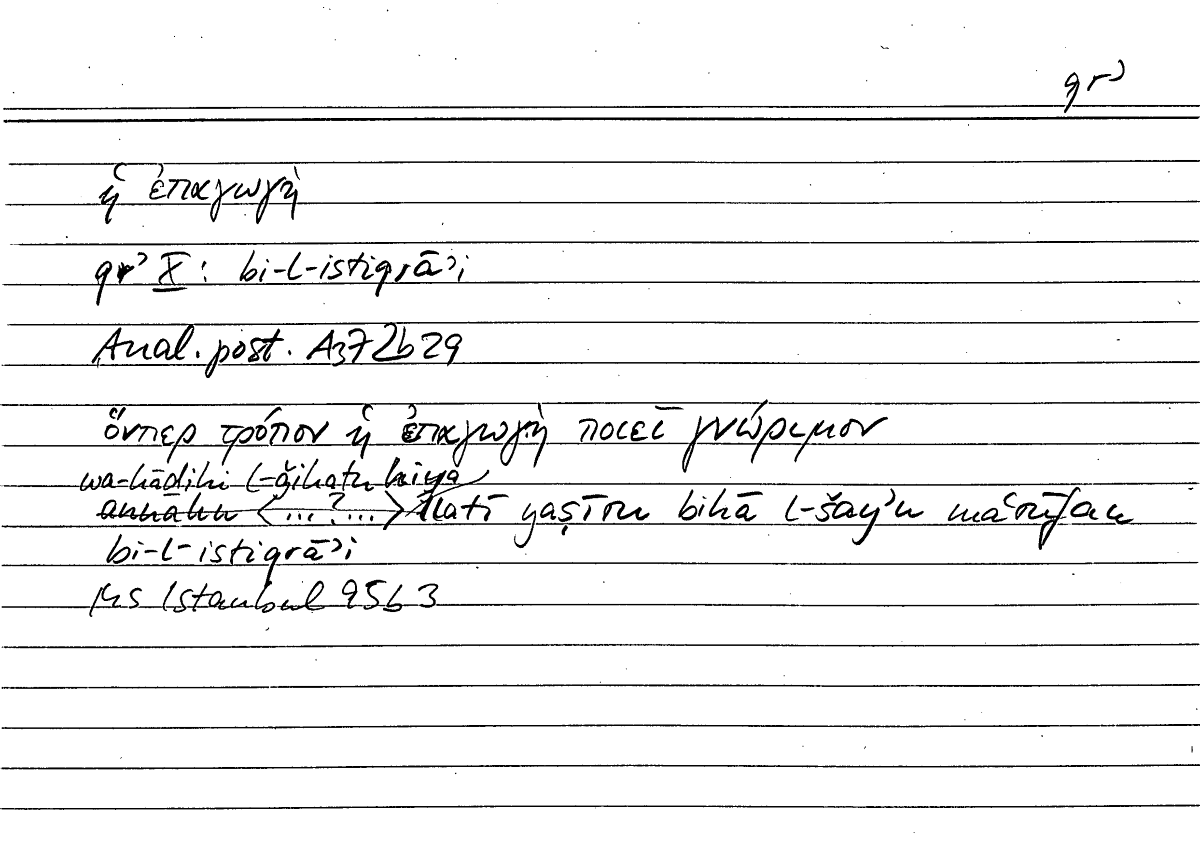 qrʾ
ἡ ἐπαγωγή
qrʾ X: bi-l-istiqrāʾi
Anal. post. A3 72b29
ὅνπερ τρόπον ἡ ἐπαγωγὴ ποιεῖ γνώριμον
wa-hāḏihi l-ǧihatu hiya
annahu <...?...> llatī yaṣīru bihā l-šayʾu maʿrūfan
bi-l-istiqrāʾi
Ms Istanbul 956 3